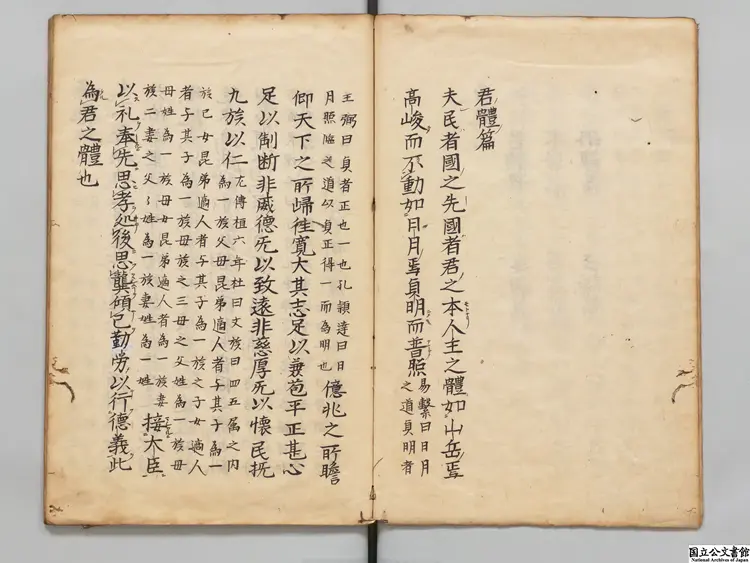 君體篇
夫民者國之先國者君之本人主之體如山岳焉
高峻而不動如日月焉貞明而普照
易繫曰日月
之道貞明者
王弼曰貞者正也一也孔穎達曰日
月照臨之道以貞正得一而為明也
億兆之所瞻
仰天下之所歸往寛大其志足以兼苞平正其心
足以制断非威德无以致遠非慈厚无以懷民抚
九族以仁
左傳桓六年杜曰文族曰四五属之内
為一族父母昆弟適人者与其子為一
族己女昆弟適人者与其子為一族之子女適人
者与其子為一族母族之三母之父姓為一族母
母姓為一族母女昆弟適人者為一族妻
族二妻之父〻姓為一族妻姓為一姓
接大臣
以礼奉先思孝処後思龔傾己勤労以行德義此
為君之體也
国立公文書館
National Archives of Japan